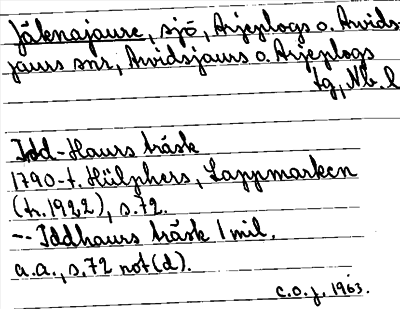 Jälknajaure, sjö, Arjeplogs o. Arvids-
jaurs snr, Arvidsjaurs o. Arjeplogs
tg, Nb. l
Idd-Haurs träsk
1790-t. Hülphers, Lappmarken
(tr. 1922), s. 72.
-- Iddhaurs träsk 1 mil.
a.a., s. 72 not (d).
C.O.J. 1963.